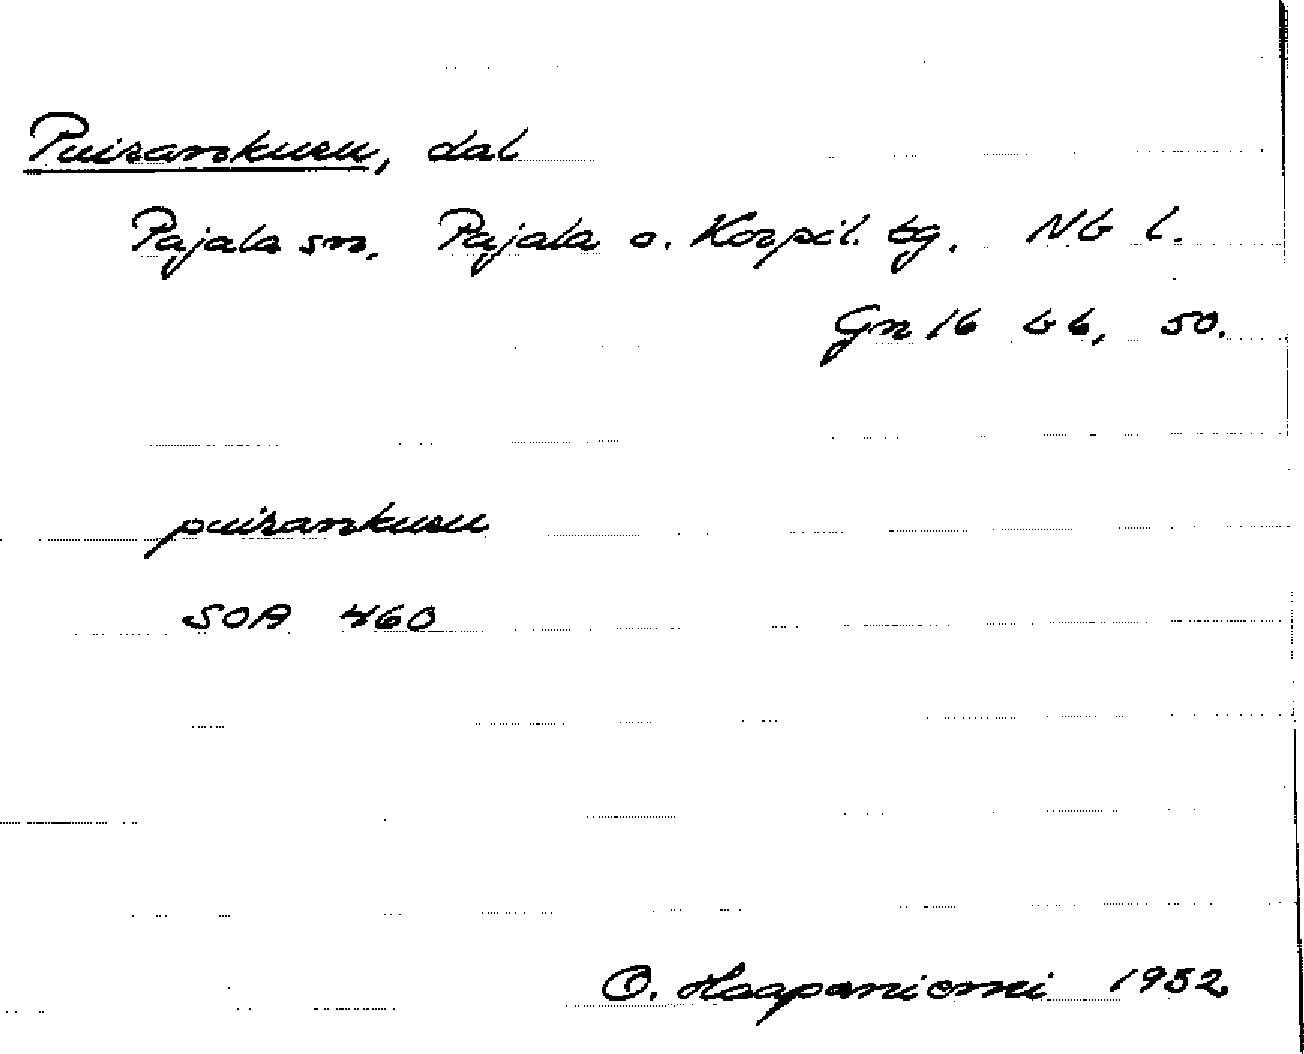 Puirankuru, dal
Pajala sn. Pajala o. Korpil. tg. Nb l.
Gn 16 bb, 50.
puirankuru
SOA 460
O. Haapaniemi 1952